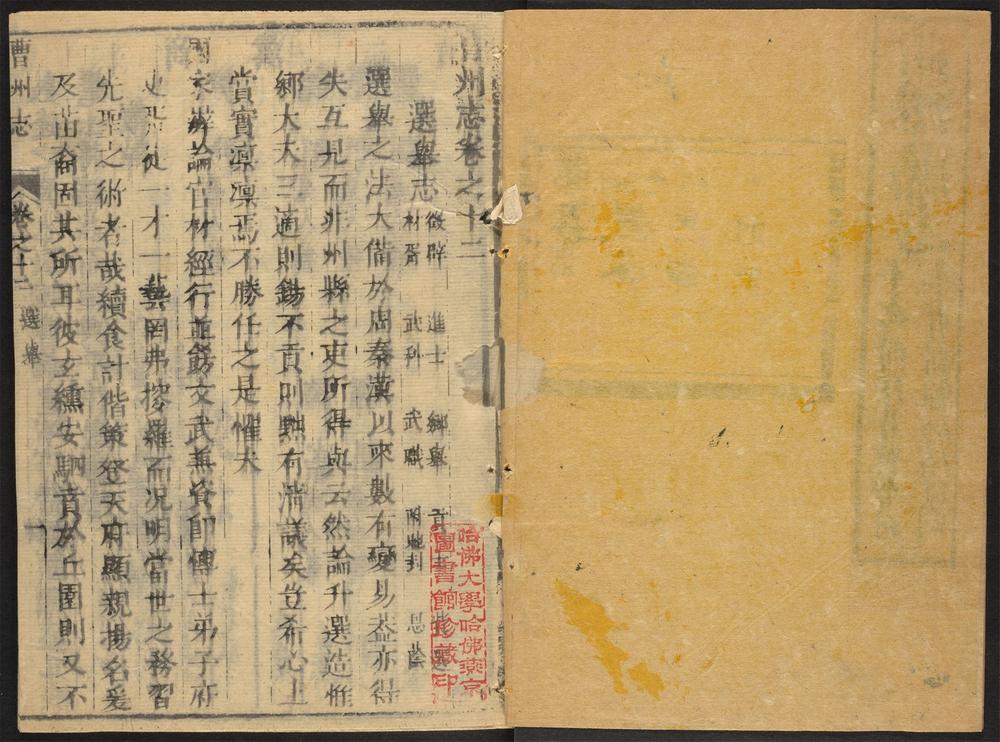 州志卷之十二
選舉志 徵辟 進士 鄉舉
材胥 武科 武職 封 恩蔭
選舉之法大備於周秦漢以來數有變易盖亦得
失互見而非州縣之吏所得與云然論升選造惟
鄉大夫三適則錫不貢則黜有淸議矣豈希心上
賞實凛凛焉不勝任之是懼夫
國家辨論官材經行並飭文武兼資即傅士弟子府
史胥徒一才一藝罔弗搜羅而况明當世之務習
先聖之術者哉續食計偕策登天府顯親揚名爰
及苗裔固其所耳彼玄纁安駟賁於丘園則又不
曹州志
卷之十二 選舉
哈佛大學哈佛燕京
圖書館珍藏印